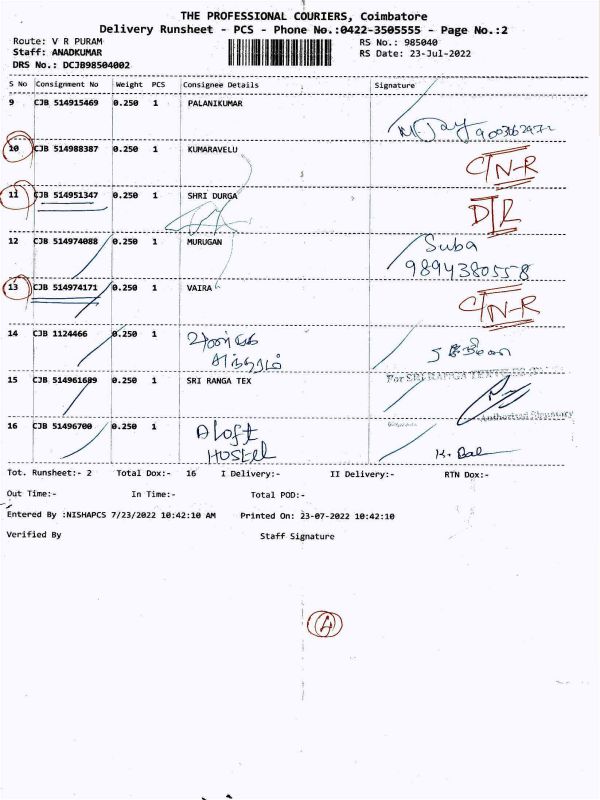 THE PROFESSIONAL COURIERS, Coimbatore
Delivery Runsheet - PCS - Phone No.:0422-3505555 - Page No.:2
Route: V R PURAM RS No.: 985040
Staff: ANADKUMAR RS Date: 23-Jul-2022
DRS No.: DCJB98504002
S No Consignment No Weight PCS Consignee Details Signature
9 CJB 514915469 0.250 1 PALANIKUMAR
10 CJB 514988387 0.250 1 KUMARAVELU C/N-R
11 CJB 514951347 0.250 1 SHRI DURGA
12 CJB 514974088 0.250 1 MURUGAN Suba
9894380558
13 CJB 514974171 0.250 1 VAIRA C/N-R
14 CJB 1124466 0.250 1
15 CJB 514961689 0.250 1 SRI RANGA TEX For SRI RANGA
Authorised Signatory
16 CJB 51496700 0.250 1 Aloft
HOSTEL K. Bal
Tot. Runsheet:- 2 Total Dox:- 16 I Delivery:- II Delivery:- RTN Dox:-
Out Time:- In Time:- Total POD:-
Entered By :NISHAPCS 7/23/2022 10:42:10 AM Printed On: 23-07-2022 10:42:10
Verified By Staff Signature
4